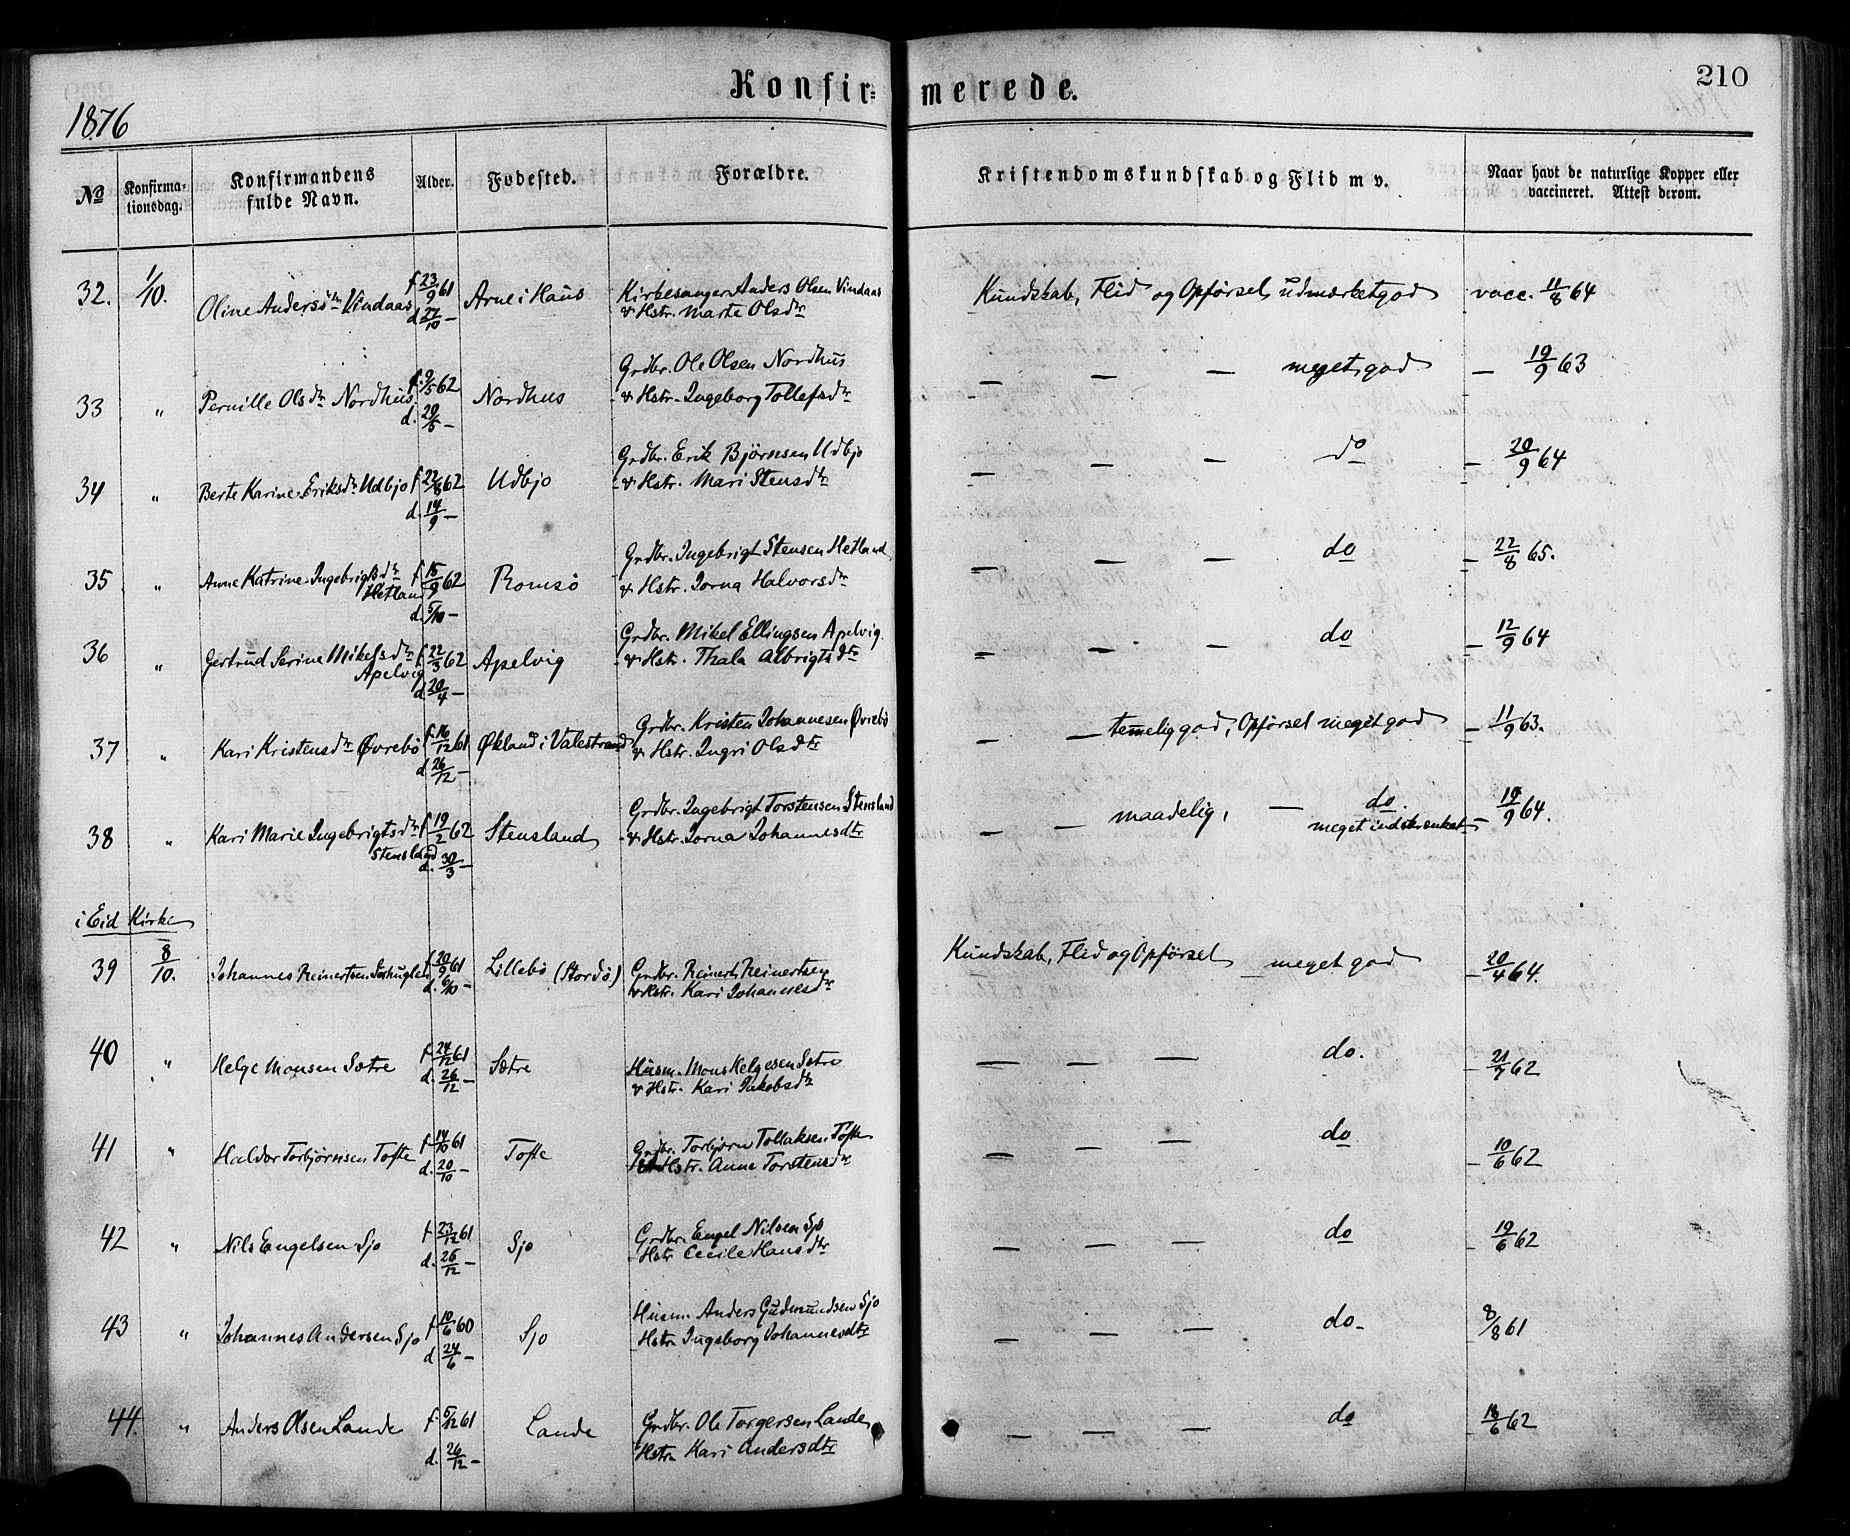 210
Konfir- merede.
1876
No Konfirmationsdag. Konfirmandens fulde Navn. Alder. Fødested. Forældre. Kristendomskundskab og Flid m v. Naar havt de naturlige Kopper eller vaccineret. Attest derom.
32. 1/10. Oline Andersdtr Vindaas f 23/9 61 Arne i Haus Kirkesanger Anders Olsen Vindaas Kundskab, Flid og Opførsel, udmærket god vacc. 11/8 64
d 27/10 — & Hstr. Marte Olsdtr
33 " Pernille Olsdtr Nordhus f. 9/5 62 Nordhus Grdbr. Ole Olsen Nordhus — — — meget god — 19/9 63
d. 29/5 — & Hstr. Ingeborg Tollefsdtr
34 " Berte Karine Eriksdtr Udbjo f 22/8 62 Udbjo Grdbr. Erik Bjørnsen Udbjo — — — do — 20/9 64
d. 14/9 — & Hstr. Mari Stensdtr
35 " Anne Katrine Ingebrigtsdtr f 15/9 62 Romsö Grdbr. Ingebrigt Stensen Hetland — — — do — 22/8 65.
Hetland d. 5/10 — & Hstr. Jorna Halvorsdtr
36 " Gertrud Serine Mikelsdtr f 22/3 62 Apelvig Grdbr. Mikel Ellingsen Apelvig. — — — do — 12/9 64
Apelvig d 20/4 — & Hstr. Thala Albrigtsdtr
37 " Kari Kristensdtr Øvrebö f. 16/12 61 Økland i Valestrand Grdbr. Kristen Johannesen Øvrebö — — temelig god, Opførsel meget god — 11/9 63.
d 26/12 — & Hstr. Ingri Olsdtr
38 " Kari Marie Ingebrigtsdtr f 19/2 62 Stensland Grdbr. Ingebrigt Torstensen Stensland — — maadelig, — do. — 19/9 64.
Stensland d. 30/3 — & Hstr. Jorna Johannesdtr meget indskrænket
i Eid Kirke
39 8/10. Johannes Reinertsen f 20/9 61 Lillebö (Stordö) Grdbr. Reinert Reinertsen Kundskab, Flid og Opførsel meget god — 20/4 64.
d. 6/10 — & Hstr. Kari Johannesdtr
40 " Helge Monsen Sætre f 24/12 61 Sætre Husm. Mons Helgesen Sætre — — — do. — 21/7 62
d. 26/12 — & Hstr. Kari Jakobsdtr
41 " Haldor Torbjørnsen Tofte f 14/10 61 Tofte Grdbr. Torbjørn Tollaksen Tofte — — — do — 10/6 62
d. 20/10 — Hstr. Anna Torstensdtr
42 " Nils Engelsen Sjo f 23/12 61 Sjo Grdbr. Engel Nilsen Sjo — — — do — 19/6 62
d. 26/12 — Hstr Cecile Hansdtr
43 " Johannes Andersen Sjo f 10/6 60 Sjo Husm. Anders Gudmundsen Sjo — — — do — 8/8 61
d 24/6 — Hstr Ingeborg Johannesdtr
44. " Anders Olsen Lande f. 5/12 61 Lande Grdbr. Ole Torgersen Lande — — — do 18/6 62
d. 26/12 — Hstr Kari Andersdtr